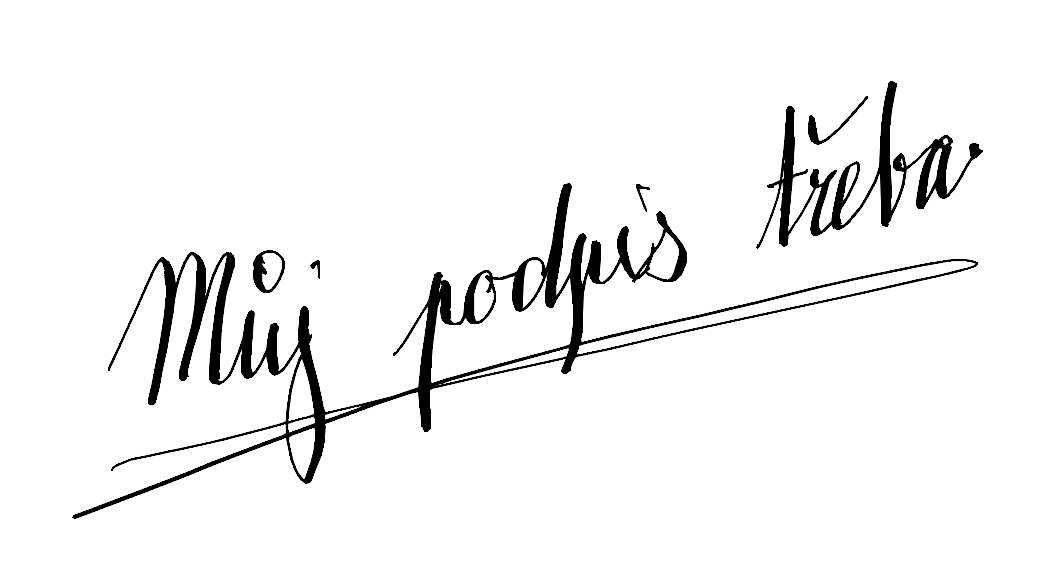 Můj podpis třeba.